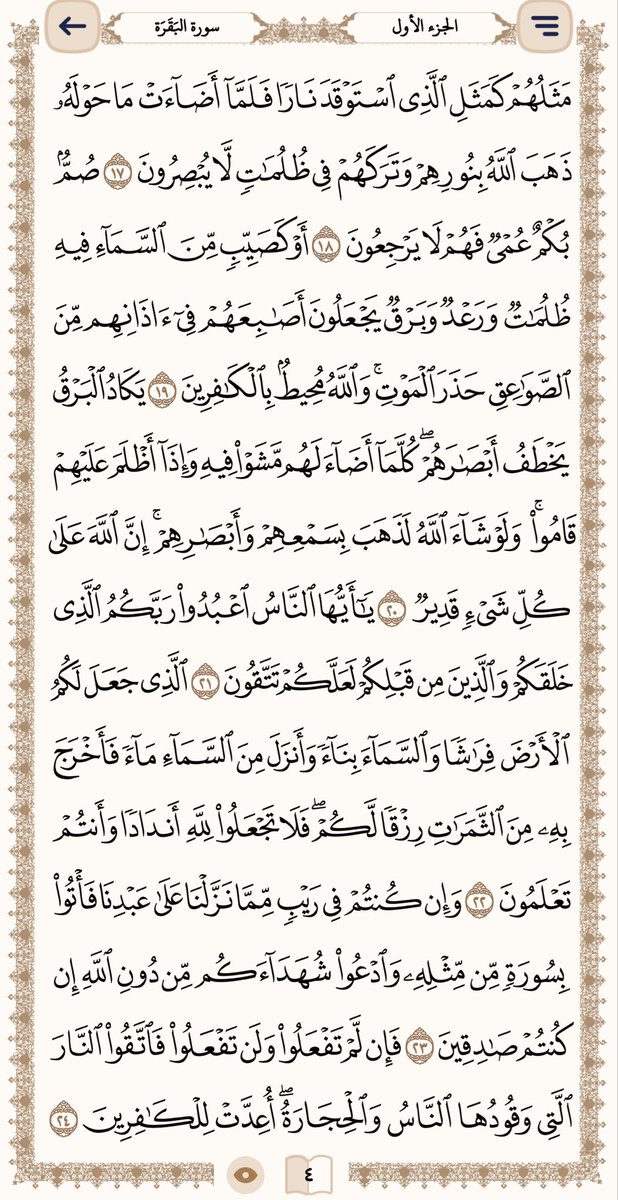 الجزء الأول
سورة البَقَرَة
مَثَلُهُمۡ كَمَثَلِ ٱلَّذِي ٱسۡتَوۡقَدَ نَارٗا فَلَمَّآ أَضَآءَتۡ مَا حَوۡلَهُۥ
ذَهَبَ ٱللَّهُ بِنُورِهِمۡ وَتَرَكَهُمۡ فِي ظُلُمَٰتٖ لَّا يُبۡصِرُونَ ١٧ صُمُّۢ
بُكۡمٌ عُمۡيٞ فَهُمۡ لَا يَرۡجِعُونَ ١٨ أَوۡ كَصَيِّبٖ مِّنَ ٱلسَّمَآءِ فِيهِ
ظُلُمَٰتٞ وَرَعۡدٞ وَبَرۡقٞ يَجۡعَلُونَ أَصَٰبِعَهُمۡ فِيٓ ءَاذَانِهِم مِّنَ
ٱلصَّوَٰعِقِ حَذَرَ ٱلۡمَوۡتِۚ وَٱللَّهُ مُحِيطُۢ بِٱلۡكَٰفِرِينَ ١٩ يَكَادُ ٱلۡبَرۡقُ
يَخۡطَفُ أَبۡصَٰرَهُمۡۖ كُلَّمَآ أَضَآءَ لَهُم مَّشَوۡاْ فِيهِ وَإِذَآ أَظۡلَمَ عَلَيۡهِمۡ
قَامُواْۚ وَلَوۡ شَآءَ ٱللَّهُ لَذَهَبَ بِسَمۡعِهِمۡ وَأَبۡصَٰرِهِمۡۚ إِنَّ ٱللَّهَ عَلَىٰ
كُلِّ شَيۡءٖ قَدِيرٞ ٢٠ يَٰٓأَيُّهَا ٱلنَّاسُ ٱعۡبُدُواْ رَبَّكُمُ ٱلَّذِي
خَلَقَكُمۡ وَٱلَّذِينَ مِن قَبۡلِكُمۡ لَعَلَّكُمۡ تَتَّقُونَ ٢١ ٱلَّذِي جَعَلَ لَكُمُ
ٱلۡأَرۡضَ فِرَٰشٗا وَٱلسَّمَآءَ بِنَآءٗ وَأَنزَلَ مِنَ ٱلسَّمَآءِ مَآءٗ فَأَخۡرَجَ
بِهِۦ مِنَ ٱلثَّمَرَٰتِ رِزۡقٗا لَّكُمۡۖ فَلَا تَجۡعَلُواْ لِلَّهِ أَندَادٗا وَأَنتُمۡ
تَعۡلَمُونَ ٢٢ وَإِن كُنتُمۡ فِي رَيۡبٖ مِّمَّا نَزَّلۡنَا عَلَىٰ عَبۡدِنَا فَأۡتُواْ
بِسُورَةٖ مِّن مِّثۡلِهِۦ وَٱدۡعُواْ شُهَدَآءَكُم مِّن دُونِ ٱللَّهِ إِن
كُنتُمۡ صَٰدِقِينَ ٢٣ فَإِن لَّمۡ تَفۡعَلُواْ وَلَن تَفۡعَلُواْ فَٱتَّقُواْ ٱلنَّارَ
ٱلَّتِي وَقُودُهَا ٱلنَّاسُ وَٱلۡحِجَارَةُۖ أُعِدَّتۡ لِلۡكَٰفِرِينَ ٢٤
٤